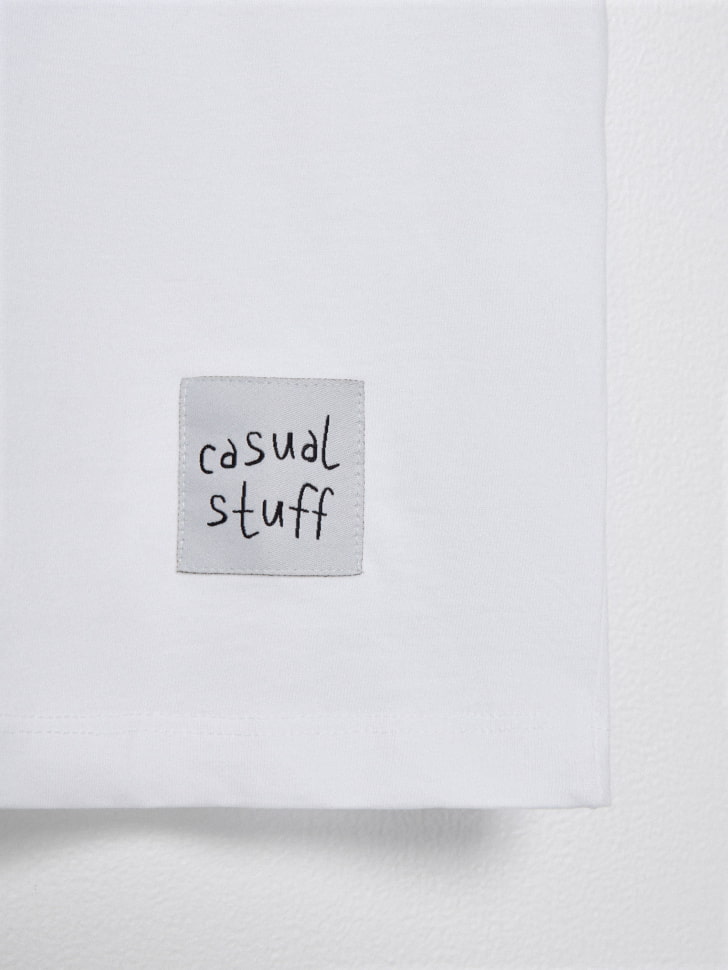 casual
stuff